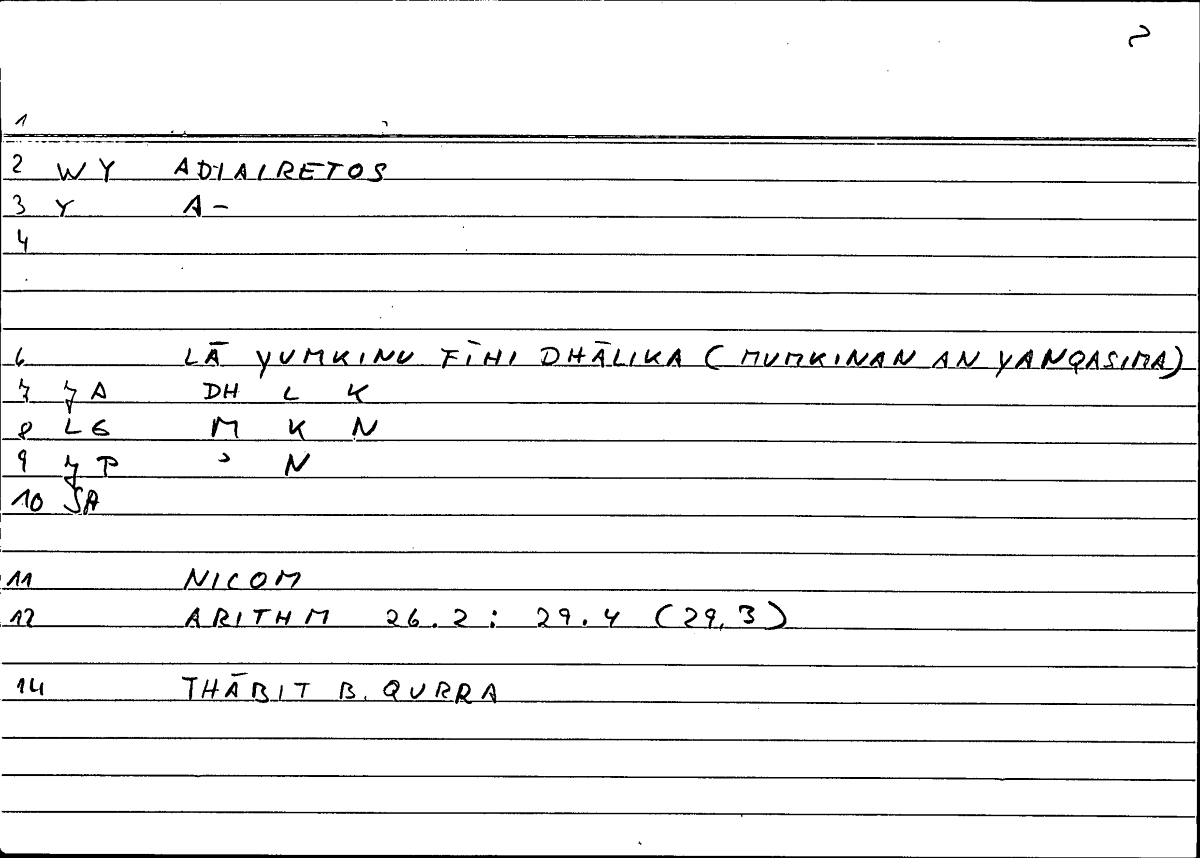 1
2 WY ADIAIRETOS
3 Y A-
4
6 LĀ YUMKINU FĪHI DHĀLIKA (MUMKINAN AN YANQASIMA)
7 A DH L K
8 LG M K N
9 P ʾ N
10 SA
11 NICOM
12 ARITHM 26.2 : 29.4 (29,3)
14 THĀBIT B. QURRA